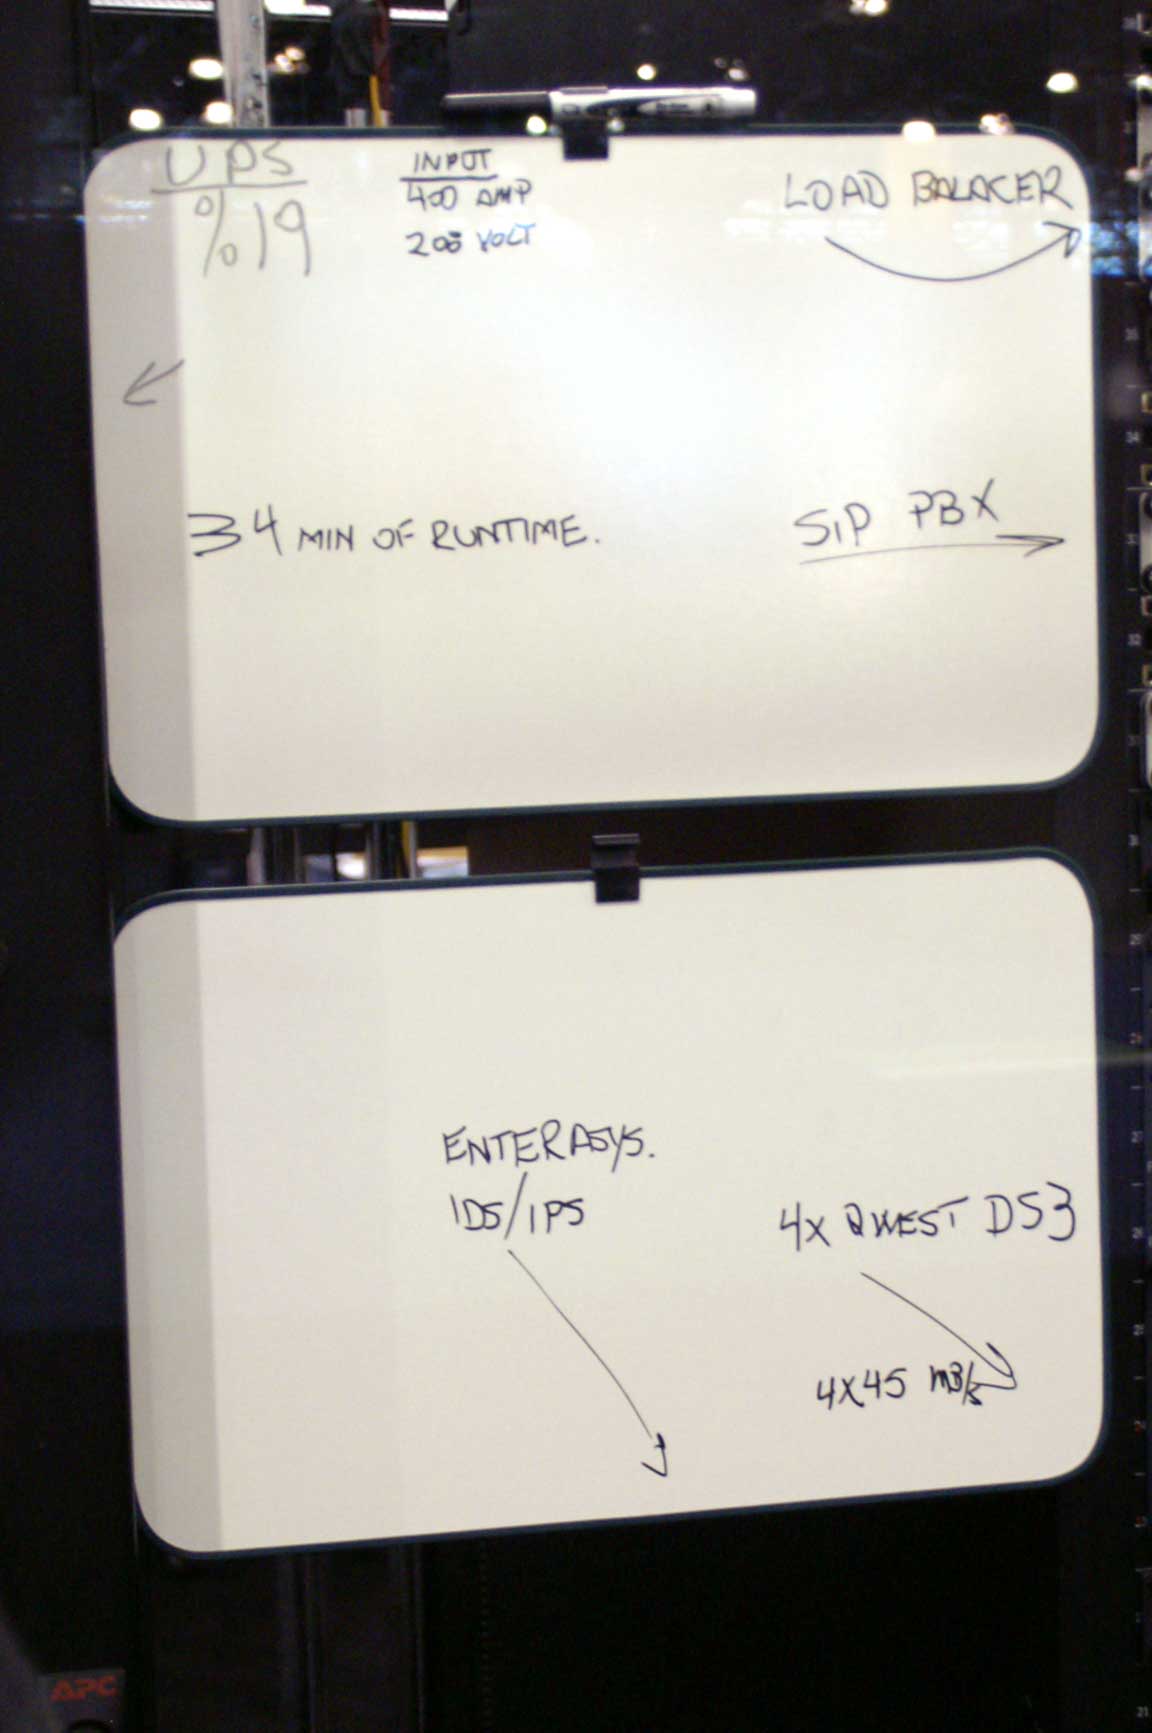 UPS
%19
INPUT
400 AMP
208 VOLT
LOAD BALACER
34 MIN OF RUNTIME.
SIP PBX
ENTERASYS.
IDS/IPS
4X QWEST DS3
4X45 MB/s
APC
34
33
32
29
21